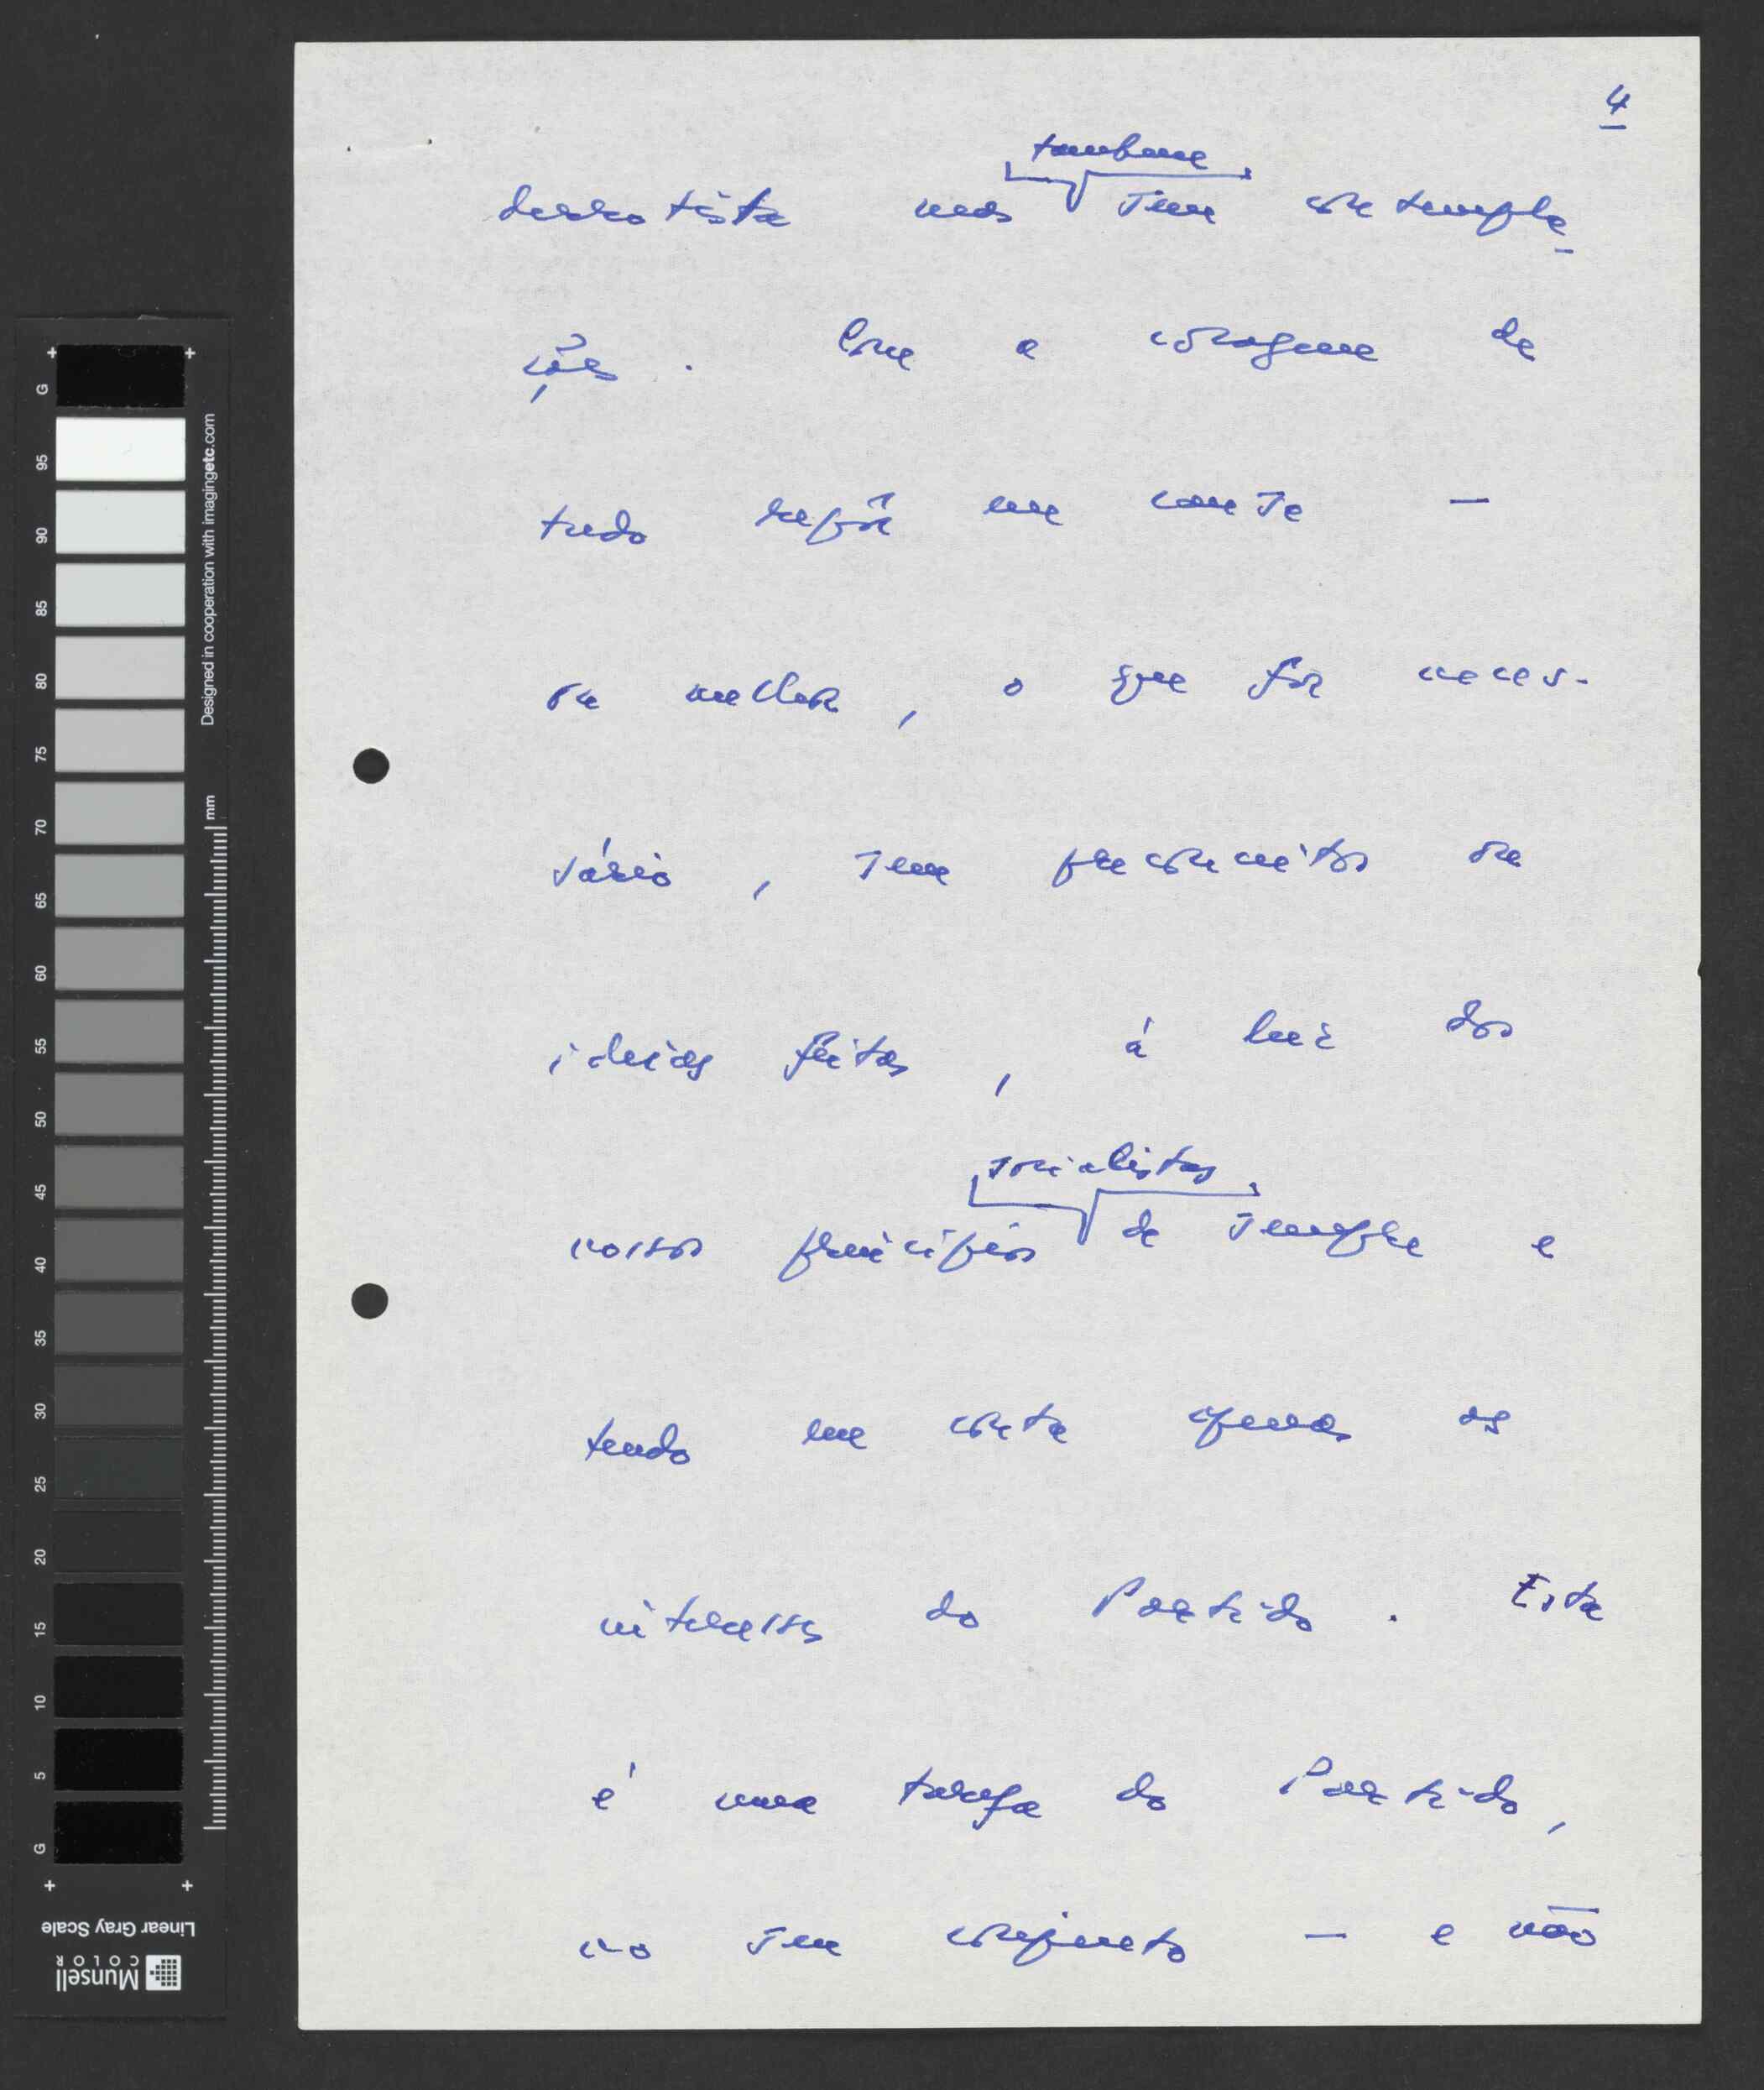 4
também
derrotista mas sem contempla-
ções. Com a coragem de
tudo repôr em causa —
ou melhor, o que for neces-
sário, sem preconceitos ou
ideias feitas, á luz dos
socialistas
nossos princípios de sempre e
tendo em conta apenas os
interesses do Partido. Esta
é uma tarefa do Partido,
no seu conjunto — e não
G
95
90
85
80
75
70
65
60
55
50
45
40
35
30
25
20
15
10
5
G
Designed in cooperation with imagingetc.com
mm
Linear Gray Scale
Munsell
COLOR